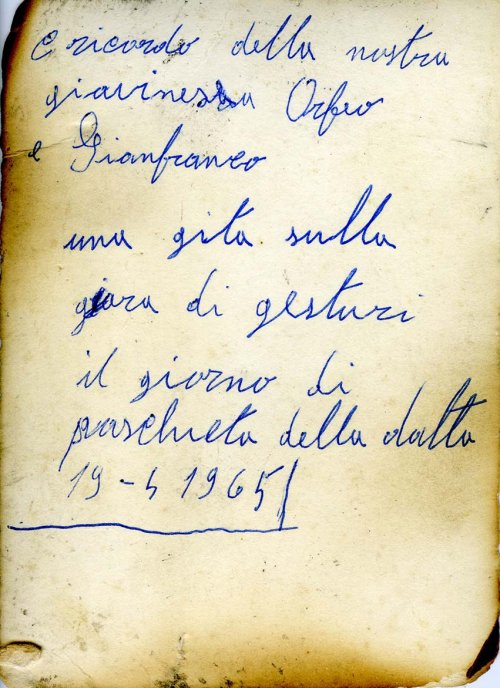 e ricordo della nostra
giavinessa Orfeo
e Gianfranco
una gita sulla
giara di gesturi
il giorno di
paschieta della datta
19-4 1965